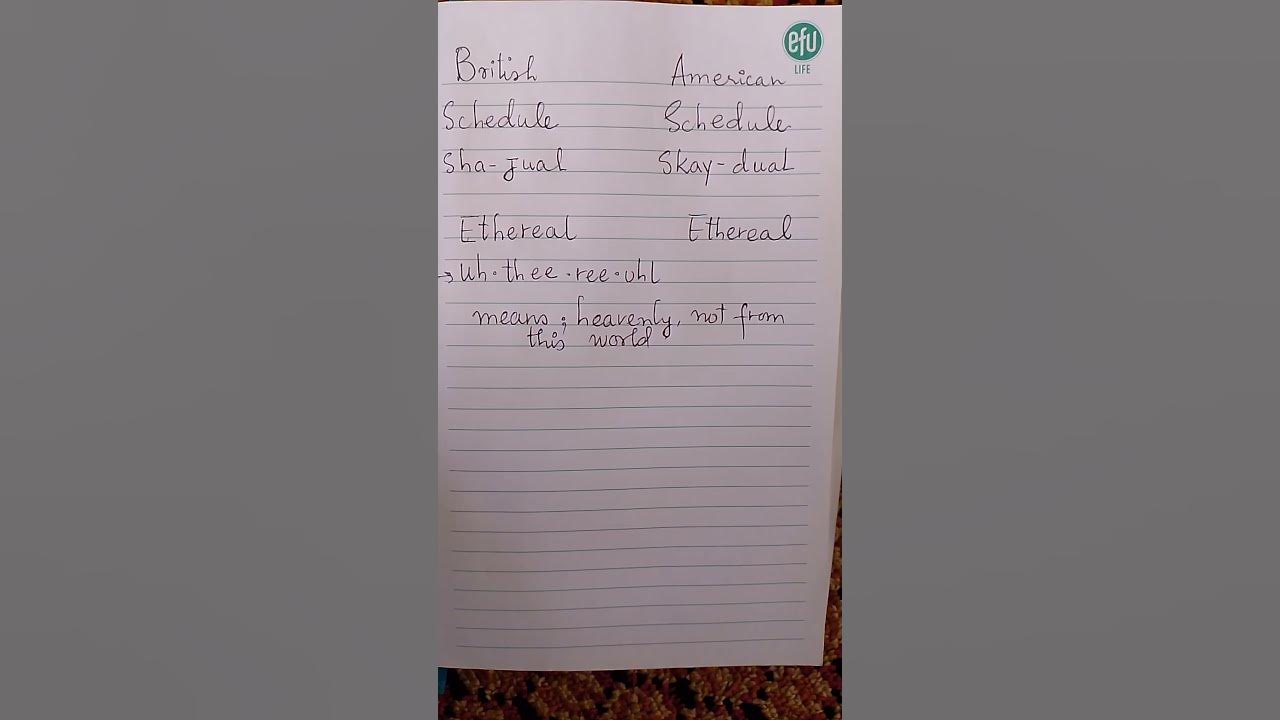 efu
LIFE
British American
Schedule Schedule
Sha-jual Skay-dual
Ethereal Ethereal
→ uh·thee·ree·uhl
means; heavenly, not from
this world